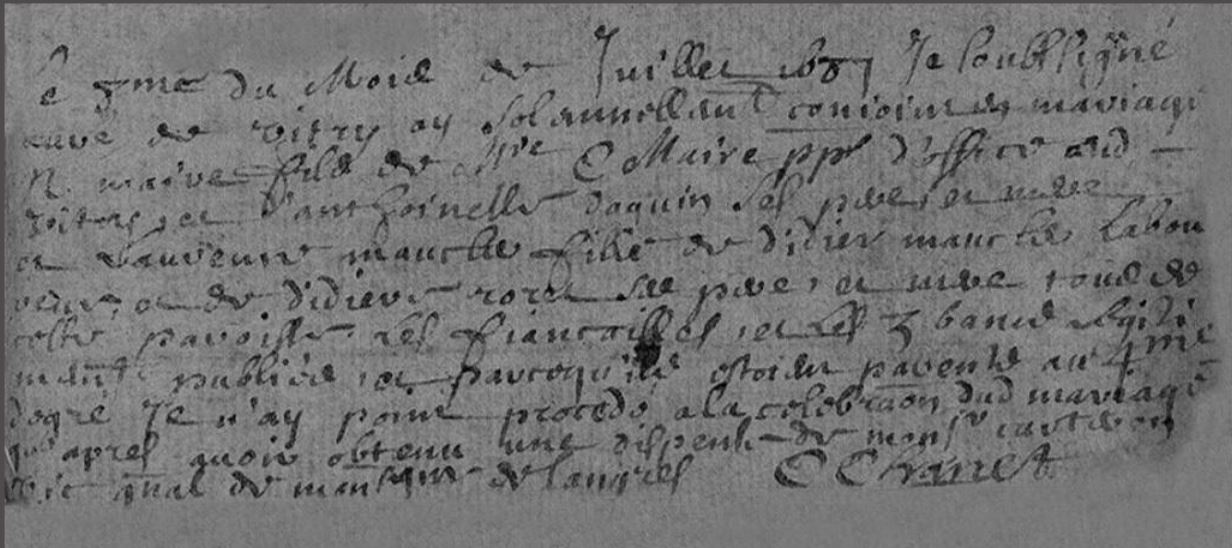 Le 3me du Mois de Juillet 1687 Je soubssigné
curé de vitry ay solannellemt conioint en mariage
N. maire fils de Mre C Maire ppr d'office aud
vitry, et d'anthoinette daquin ses pere et mere
et Laurence mauclle fille de didier mauclle Labou
reur, et de didiere roret ses pere, et mere tous de
cette paroisse les fiançailles, et les 3 bancs legiti
memt publiés, et parcequ'ils estoient parents au 4me
degré Je n'ay point procedé a la celebraõn dud mariage
qu'apres avoir obtenu une dispense de monsr
vic gnal de monsgnr de langres C Chanet